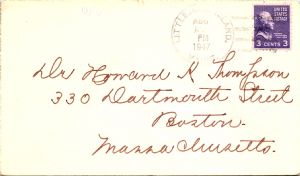 AUG
PM
1947
UNITED STATES POSTAGE
3 CENTS 3
Dr Howard K Thompson
330 Dartmouth Street
Boston.
Massachusetts.